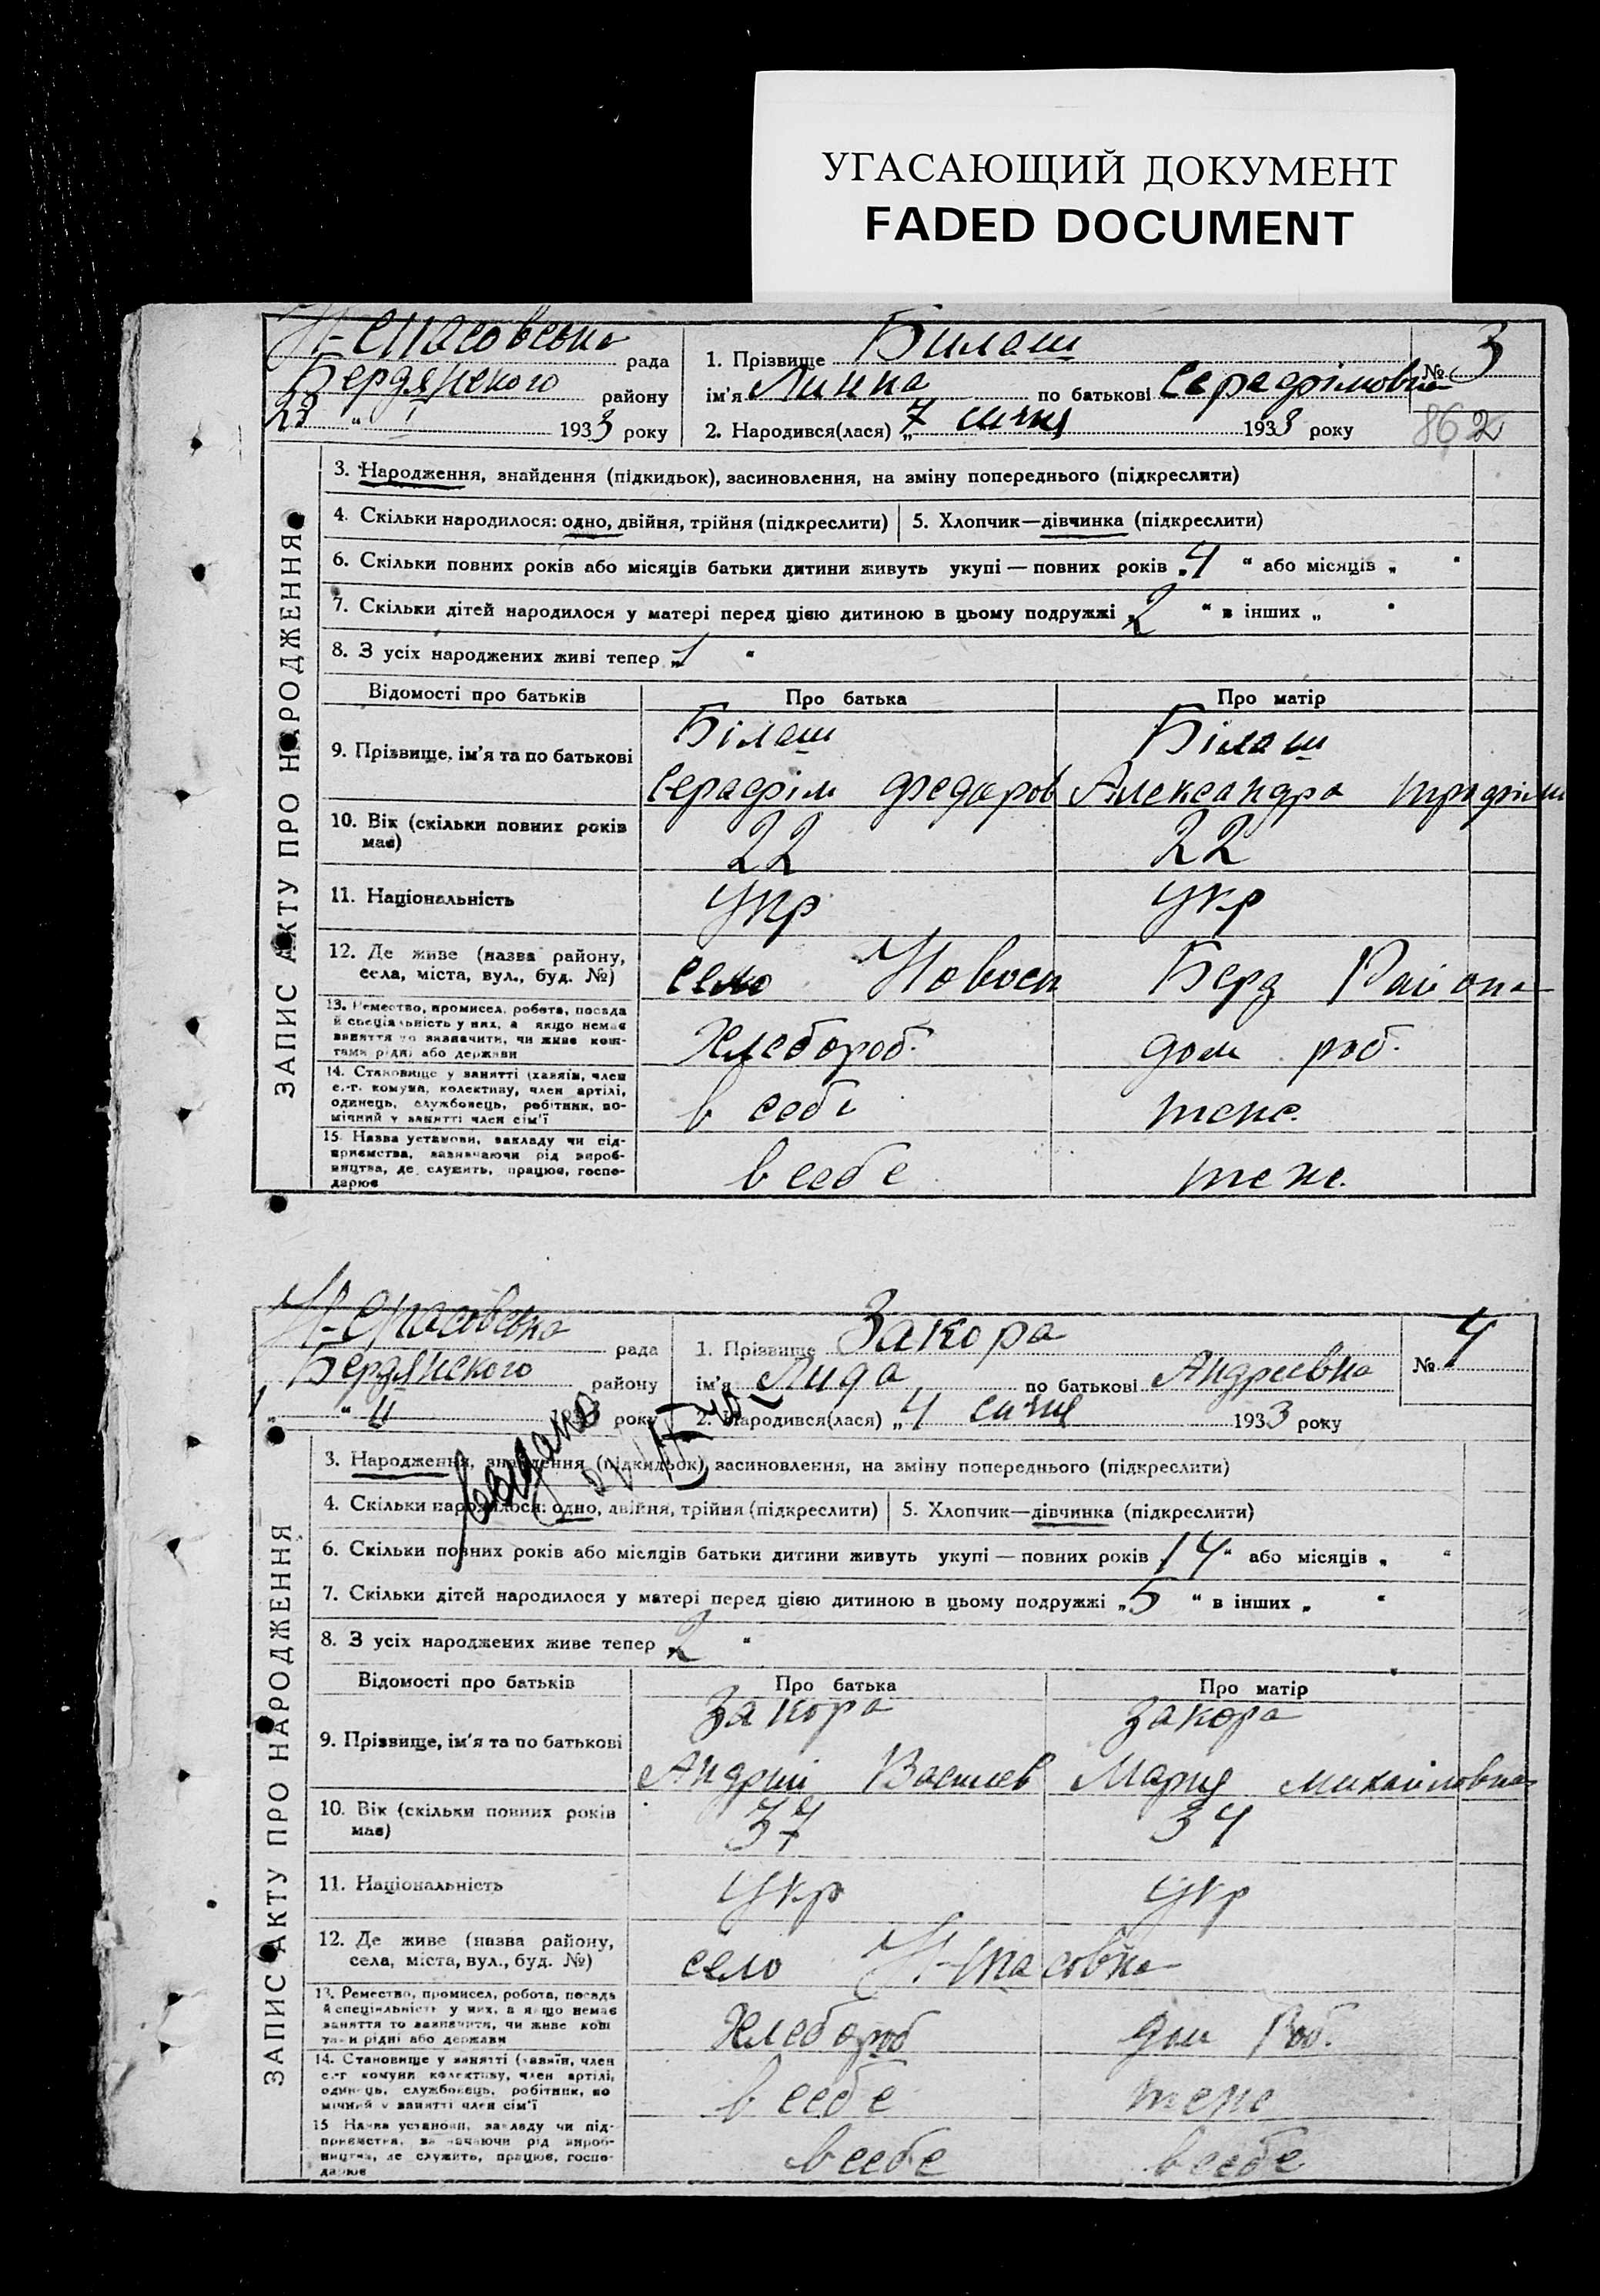 УГАСАЮЩИЙ ДОКУМЕНТ
FADED DOCUMENT
Н-Спасовська рада
Бердянского району
23 " I 1933 року
1. Прізвище Билаш
ім'я Линна по батькові Серафімовна
2. Народився(лася) „7 січня 1933 року
№ 3
862
ЗАПИС АКТУ ПРО НАРОДЖЕННЯ
3. Народження, знайдення (підкидьок), засиновлення, на зміну попереднього (підкреслити)
4. Скільки народилося: одно, двійня, трійня (підкреслити) 5. Хлопчик—дівчинка (підкреслити)
6. Скільки повних років або місяців батьки дитини живуть укупі — повних років „4 “ або місяців „ “
7. Скільки дітей народилося у матері перед цією дитиною в цьому подружжі „2 “ в інших „ “
8. З усіх народжених живі тепер „1 “
Відомості про батьків Про батька Про матір
9. Прізвище, ім'я та по батькові Білаш Білаш
Серафім Федоров Александра
10. Вік (скільки повних років має) 22 22
11. Національність Укр Укр
12. Де живе (назва району, села, міста, вул., буд. №) село Новосп Берд Района
13. Ремество, промисел, робота, посада й спеціальність у них, а якщо немає заняття то визначити, чи живе коштами рідні або держави Хлебороб. дом роб.
14. Становище у занятті (хазяїн, член с.-г. комуни, колективу, член артілі, одинець, службовець, робітник, помічний у занятті член сім'ї в себі тене.
15. Назва установи, закладу чи підприємства, зазначаючи рід виробництва, де служить, працює, господарює в себе тене.
Н-Спасовська рада
Бердянского району
1 " II року
1. Прізвище Закора
ім'я Лида по батькові Андреевна
2. Народився(лася) „4 січня 1933 року
№ 4
выдано
ЗАПИС АКТУ ПРО НАРОДЖЕННЯ
3. Народження, знайдення (підкидьок), засиновлення, на зміну попереднього (підкреслити)
4. Скільки народилося: одно, двійня, трійня (підкреслити) 5. Хлопчик—дівчинка (підкреслити)
6. Скільки повних років або місяців батьки дитини живуть укупі — повних років „14“ або місяців „ “
7. Скільки дітей народилося у матері перед цією дитиною в цьому подружжі „5 “ в інших „ “
8. З усіх народжених живе тепер „2 “
Відомості про батьків Про батька Про матір
9. Прізвище, ім'я та по батькові Закора Закора
Андрий Васильев Мария Михайловна
10. Вік (скільки повних років має) 37 34
11. Національність Укр Укр
12. Де живе (назва району, села, міста, вул., буд. №) село Н-Спасовка
13. Ремество, промисел, робота, посада й спеціальність у них, а якщо немає заняття то зазначити, чи живе коштами рідні або держави Хлебороб дом Роб.
14. Становище у занятті (хазяїн, член с.-г. комуни колективу, член артілі, одинець, службовець, робітник, помічний у занятті член сім'ї в себе тене
15 Назва установи, закладу чи підприємства, зазначаючи рід виробництва, де служить, працює, господарює в себе в себе